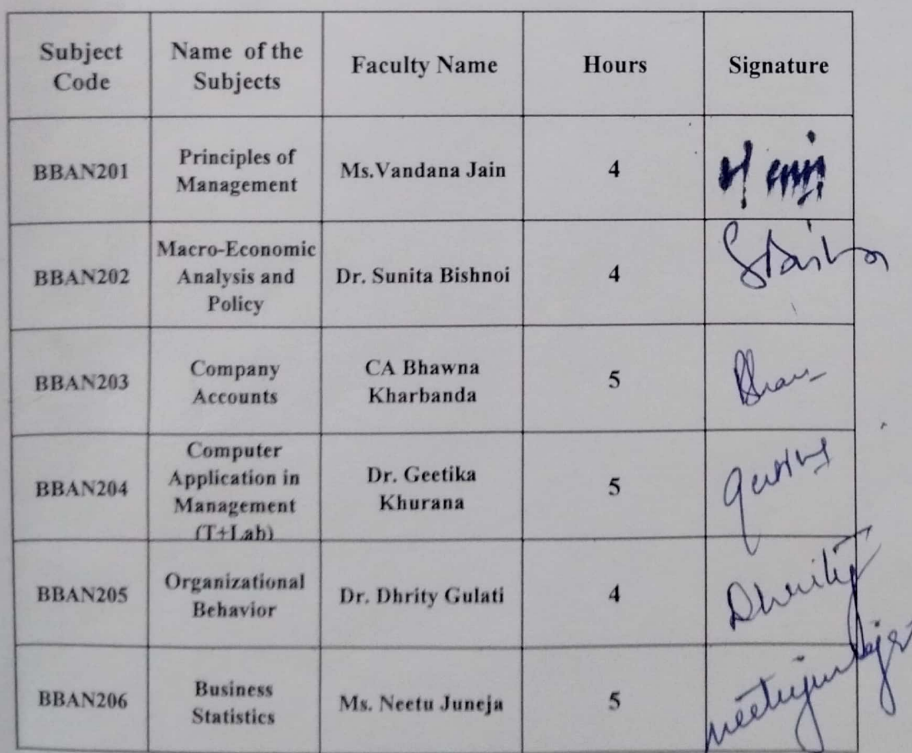 Subject Code
Name of the Subjects
Faculty Name
Hours
Signature
BBAN201
Principles of Management
Ms.Vandana Jain
4
BBAN202
Macro-Economic Analysis and Policy
Dr. Sunita Bishnoi
4
BBAN203
Company Accounts
CA Bhawna Kharbanda
5
BBAN204
Computer Application in Management (T+Lab)
Dr. Geetika Khurana
5
BBAN205
Organizational Behavior
Dr. Dhrity Gulati
4
Dhrity
BBAN206
Business Statistics
Ms. Neetu Juneja
5